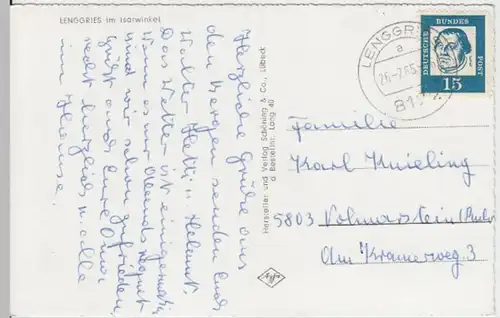 LENGGRIES im Isarwinkel
Herzliche Grüße aus
den Bergen senden Euch
Walter, Hetti u. Helmut.
Das Wetter ist einigermaßen
Wenn es nur Abends regnet
sind wir schon zufrieden.
Grüßt und Eure Oma
recht herzlich u. alle
im Hause.
Hersteller und Verlag Schöning & Co., Lübeck
Bestellnr. Leng 40
Agfa
LENGGRIES
a
26.-7.65
DEUTSCHE
BUNDES
POST
15
Familie
Karl Knieling
5803 Volmarstein (Ruhr)
Am Kramerweg 3